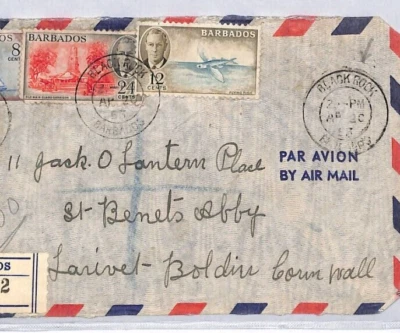 8
CENTS
BARBADOS
24
CENTS
BARBADOS
12
CENTS
BLACK ROCK
BARBADOS
BLACK ROCK
PM
PAR AVION
BY AIR MAIL
11 Jack. O Lantern Place
St-Benets Abby
Larivet-Boldin Cornwall
OS
2